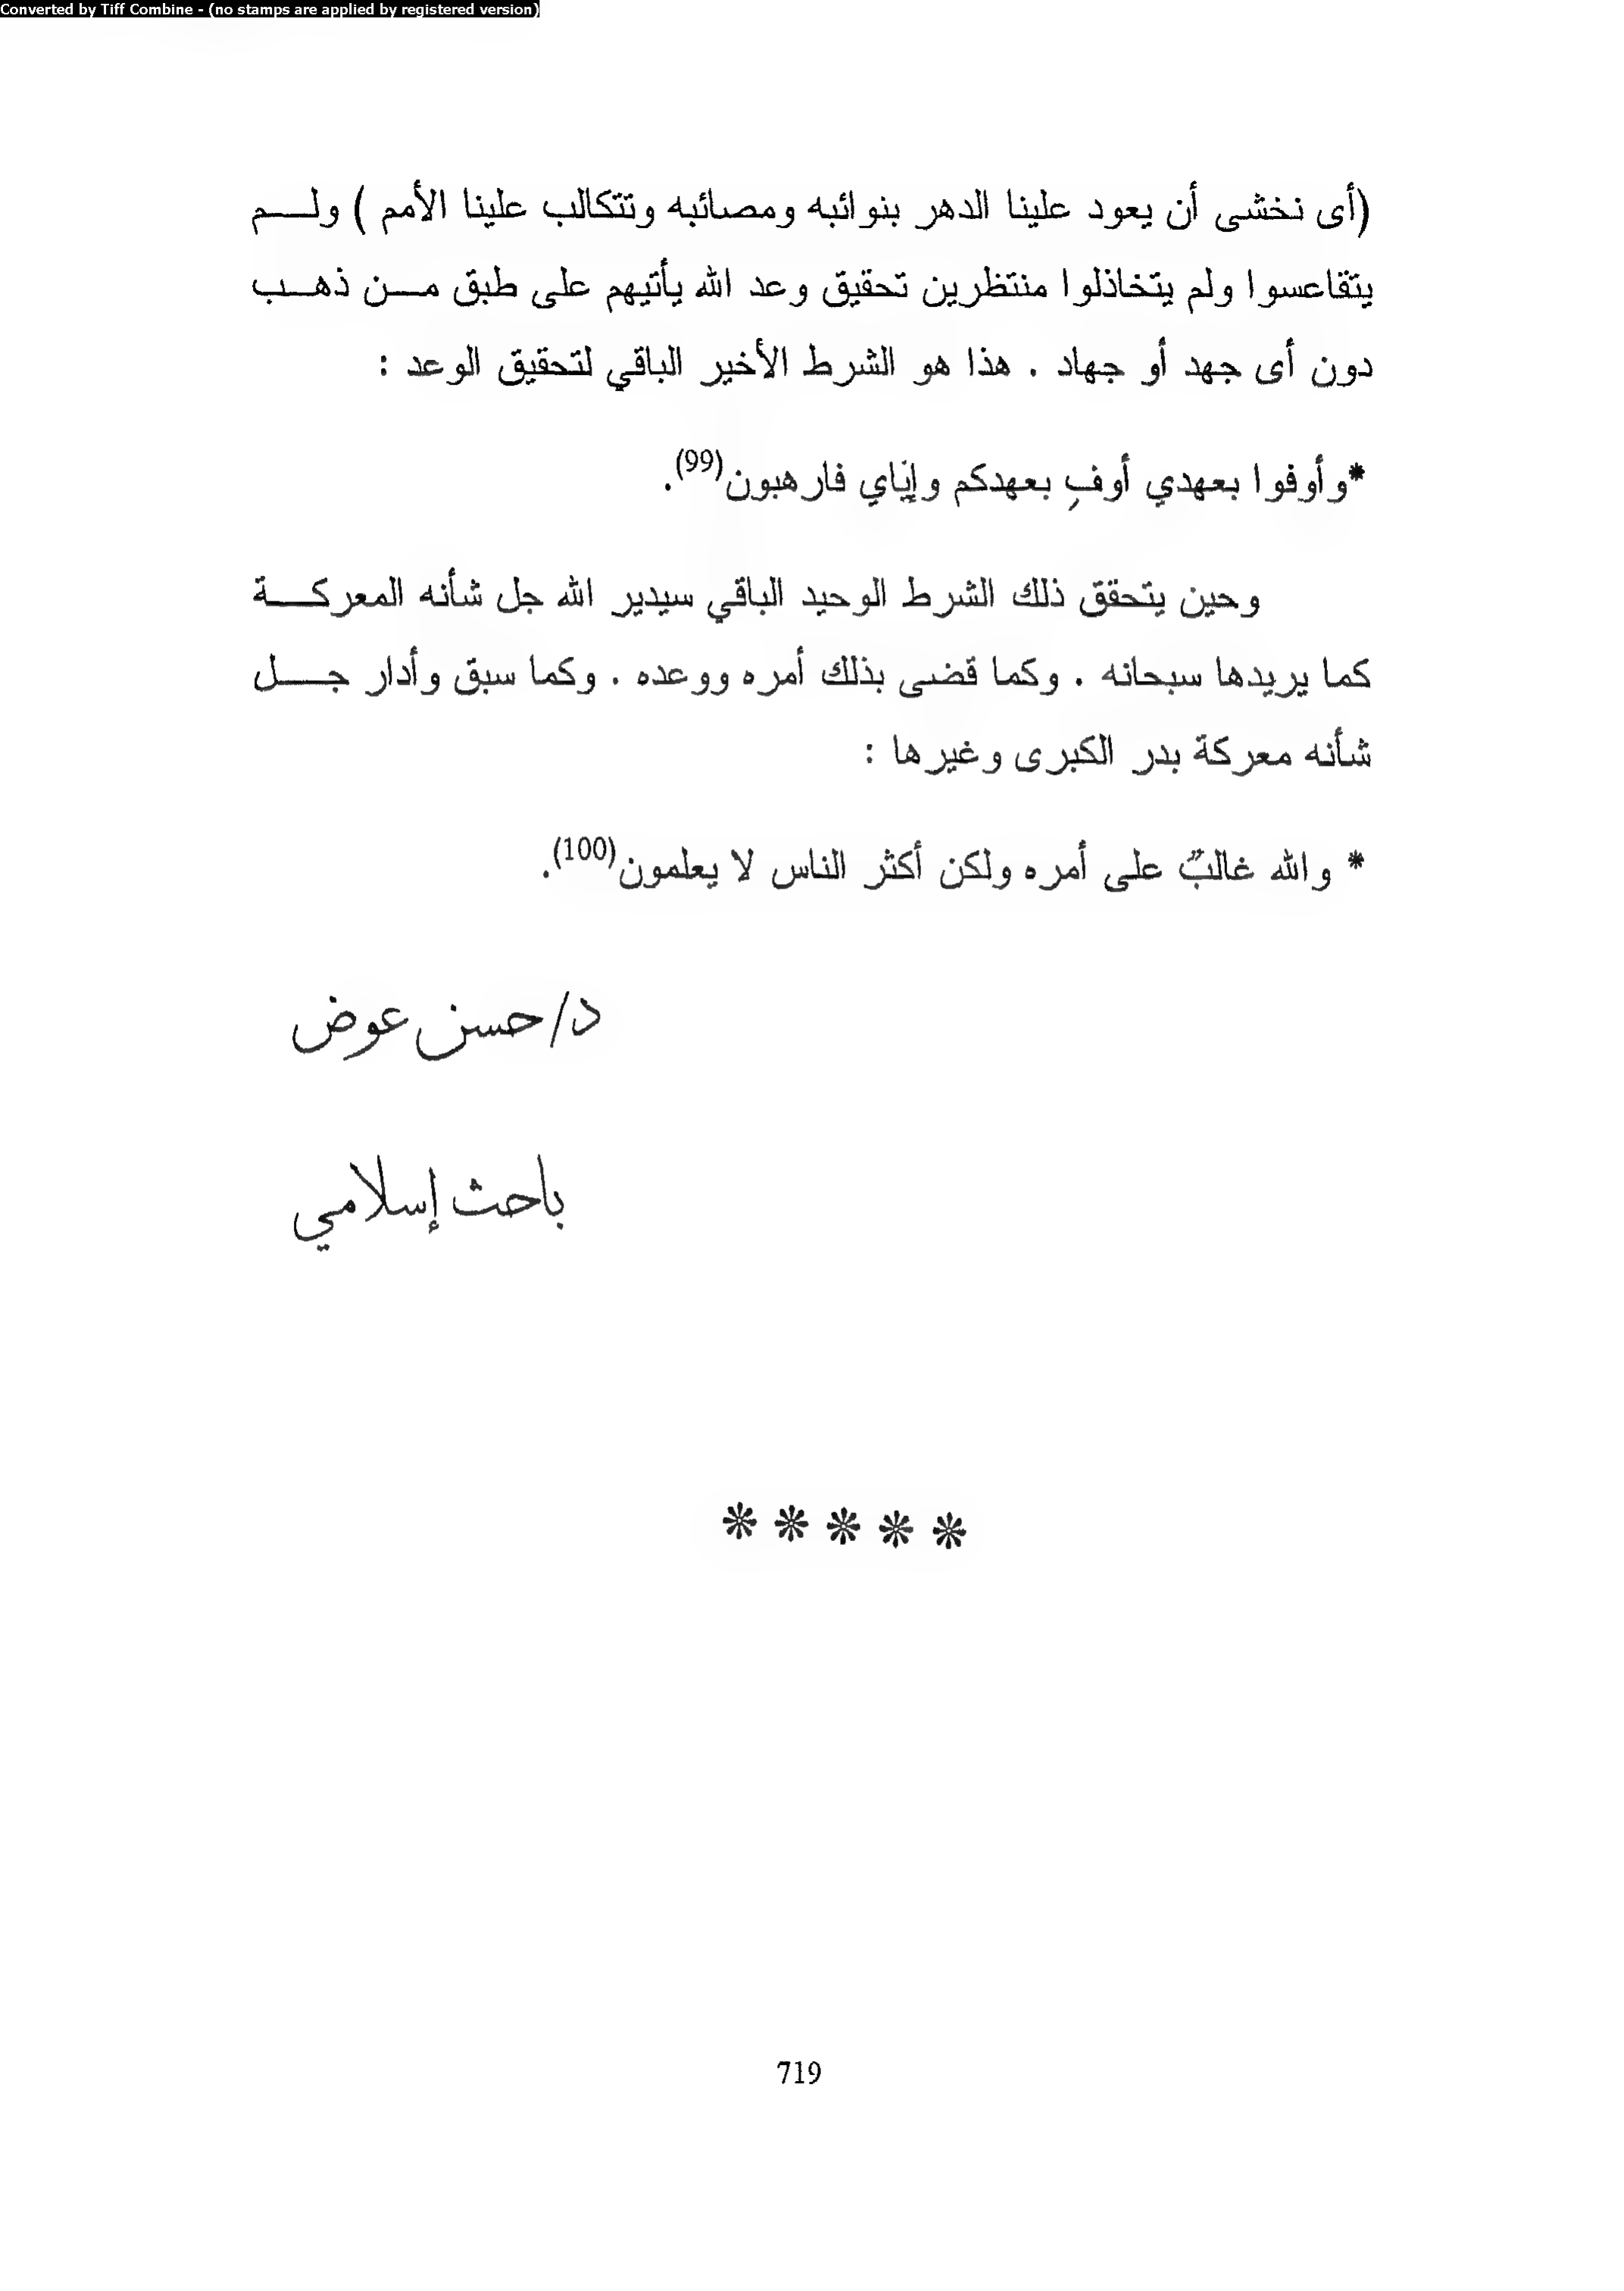 Converted by Tiff Combine - (no stamps are applied by registered version)
(أى نخشى أن يعود علينا الدهر بنوائبه ومصائبه وتتكالب علينا الأمم ) ولـــم
يتقاعسوا ولم يتخاذلوا منتظرين تحقيق وعد الله يأتيهم على طبق مـــن ذهـــب
دون أى جهد أو جهاد . هذا هو الشرط الأخير الباقي لتحقيق الوعد :
*وأوفوا بعهدي أوفِ بعهدكم وإيّاي فارهبون(99).
وحين يتحقق ذلك الشرط الوحيد الباقي سيدير الله جل شأنه المعركـــة
كما يريدها سبحانه . وكما قضى بذلك أمره ووعده . وكما سبق وأدار جـــل
شأنه معركة بدر الكبرى وغيرها :
* والله غالبٌ على أمره ولكن أكثر الناس لا يعلمون(100).
د/حسن عوض
باحث إسلامي
* * * * *
719